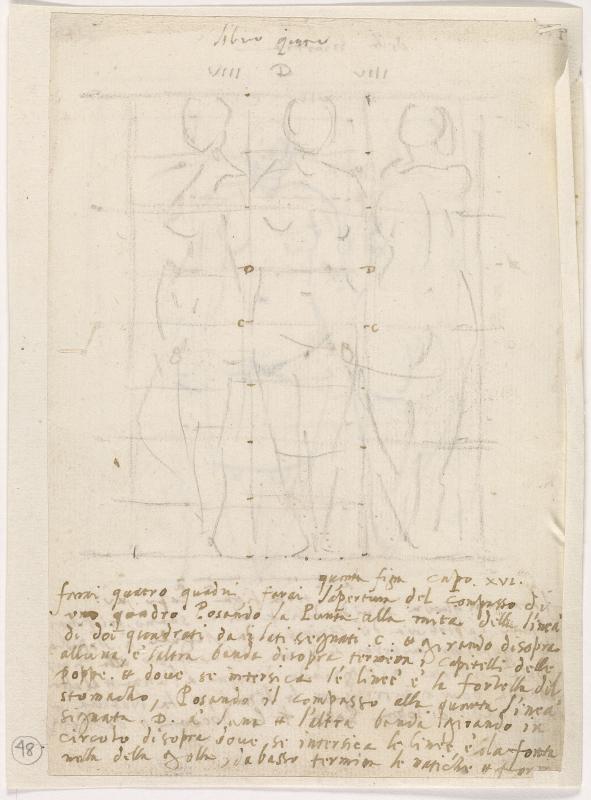 libro quinto
VIIII D VIIII
D D
C C
B B
quinta figa capo. XVI.
farai quatro quadri, farai l'apertura del compasso di
uno quadro Posando la Punta alla mita della linea
di doi quadrati da i lati segnati C. et girando di sopra
all'una e l'altra banda di sopra termena i capitelli delle
Poppe. et dove se intersica le linee è la fortella del
stomacho, Posando il compasso alla quinta linea
signata. D. a l'una et l'altra banda girando in
circolo di sopra dove se intersica le linee è la fonta
nella della golla, da basso termina le natiche et
48